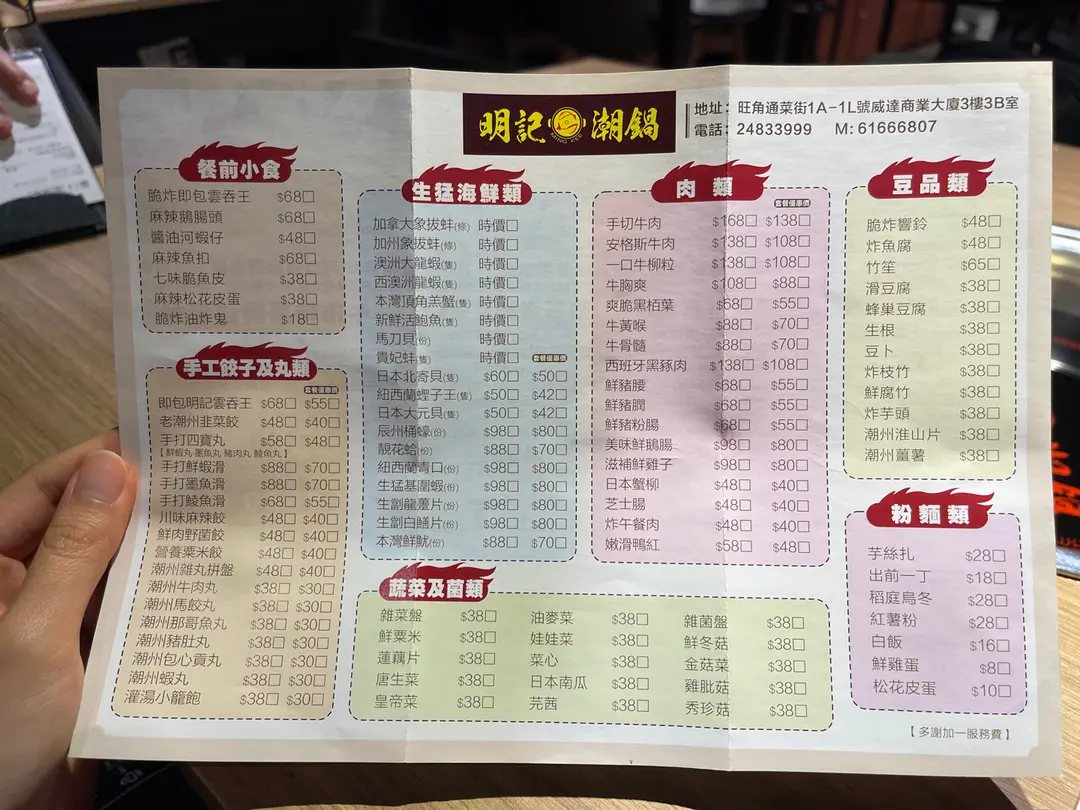 明記 潮鍋
MING KEE
地址: 旺角通菜街1A-1L號威達商業大廈3樓3B室
電話: 24833999 M: 61666807
餐前小食
脆炸即包雲吞王 $68□
麻辣鵝腸頭 $68□
醬油河蝦仔 $48□
麻辣魚扣 $68□
七味脆魚皮 $38□
麻辣松花皮蛋 $38□
脆炸油炸鬼 $18□
手工餃子及丸類
套餐優惠價
即包明記雲吞王 $68□ $55□
老潮州韭菜餃 $48□ $40□
手打四寶丸 $58□ $48□
【鮮蝦丸 墨魚丸 豬肉丸 鯪魚丸】
手打鮮蝦滑 $88□ $70□
手打墨魚滑 $88□ $70□
手打鯪魚滑 $68□ $55□
川味麻辣餃 $48□ $40□
鮮肉野菌餃 $48□ $40□
營養粟米餃 $48□ $40□
潮州雜丸拼盤 $48□ $40□
潮州牛肉丸 $38□ $30□
潮州馬餃丸 $38□ $30□
潮州那哥魚丸 $38□ $30□
潮州豬肚丸 $38□ $30□
潮州包心貢丸 $38□ $30□
潮州蝦丸 $38□ $30□
灌湯小籠飽 $38□ $30□
生猛海鮮類
加拿大象拔蚌(條) 時價□
加州象拔蚌(條) 時價□
澳洲大龍蝦(隻) 時價□
西澳洲龍蝦(隻) 時價□
本灣頂角羔蟹(隻) 時價□
新鮮活鮑魚(隻) 時價□
馬刀貝(份) 時價□
貴妃蚌(隻) 時價□ 套餐優惠價
日本北寄貝(隻) $60□ $50□
紐西蘭蟶子王(隻) $50□ $42□
日本大元貝(隻) $50□ $42□
辰州桶蠔(份) $98□ $80□
靚花蛤(份) $88□ $70□
紐西蘭青口(份) $98□ $80□
生猛基圍蝦(份) $98□ $80□
生劏龍躉片(份) $98□ $80□
生劏白鱔片(份) $98□ $80□
本灣鮮魷(份) $88□ $70□
肉類
套餐優惠價
手切牛肉 $168□ $138□
安格斯牛肉 $138□ $108□
一口牛柳粒 $138□ $108□
牛胸爽 $108□ $88□
爽脆黑栢葉 $68□ $55□
牛黃喉 $88□ $70□
牛骨髓 $88□ $70□
西班牙黑豚肉 $138□ $108□
鮮豬腰 $68□ $55□
鮮豬膶 $68□ $55□
鮮豬粉腸 $68□ $55□
美味鮮鵝腸 $98□ $80□
滋補鮮雞子 $98□ $80□
日本蟹柳 $48□ $40□
芝士腸 $48□ $40□
炸午餐肉 $48□ $40□
嫩滑鴨紅 $58□ $48□
豆品類
脆炸響鈴 $48□
炸魚腐 $48□
竹笙 $65□
滑豆腐 $38□
蜂巢豆腐 $38□
生根 $38□
豆卜 $38□
炸枝竹 $38□
鮮腐竹 $38□
炸芋頭 $38□
潮州淮山片 $38□
潮州薑薯 $38□
粉麵類
芋絲扎 $28□
出前一丁 $18□
稻庭烏冬 $28□
紅薯粉 $28□
白飯 $16□
鮮雞蛋 $8□
松花皮蛋 $10□
蔬菜及菌類
雜菜盤 $38□ 油麥菜 $38□ 雜菌盤 $38□
鮮粟米 $38□ 娃娃菜 $38□ 鮮冬菇 $38□
蓮藕片 $38□ 菜心 $38□ 金菇菜 $38□
唐生菜 $38□ 日本南瓜 $38□ 雞肶菇 $38□
皇帝菜 $38□ 芫茜 $38□ 秀珍菇 $38□
【多謝加一服務費】